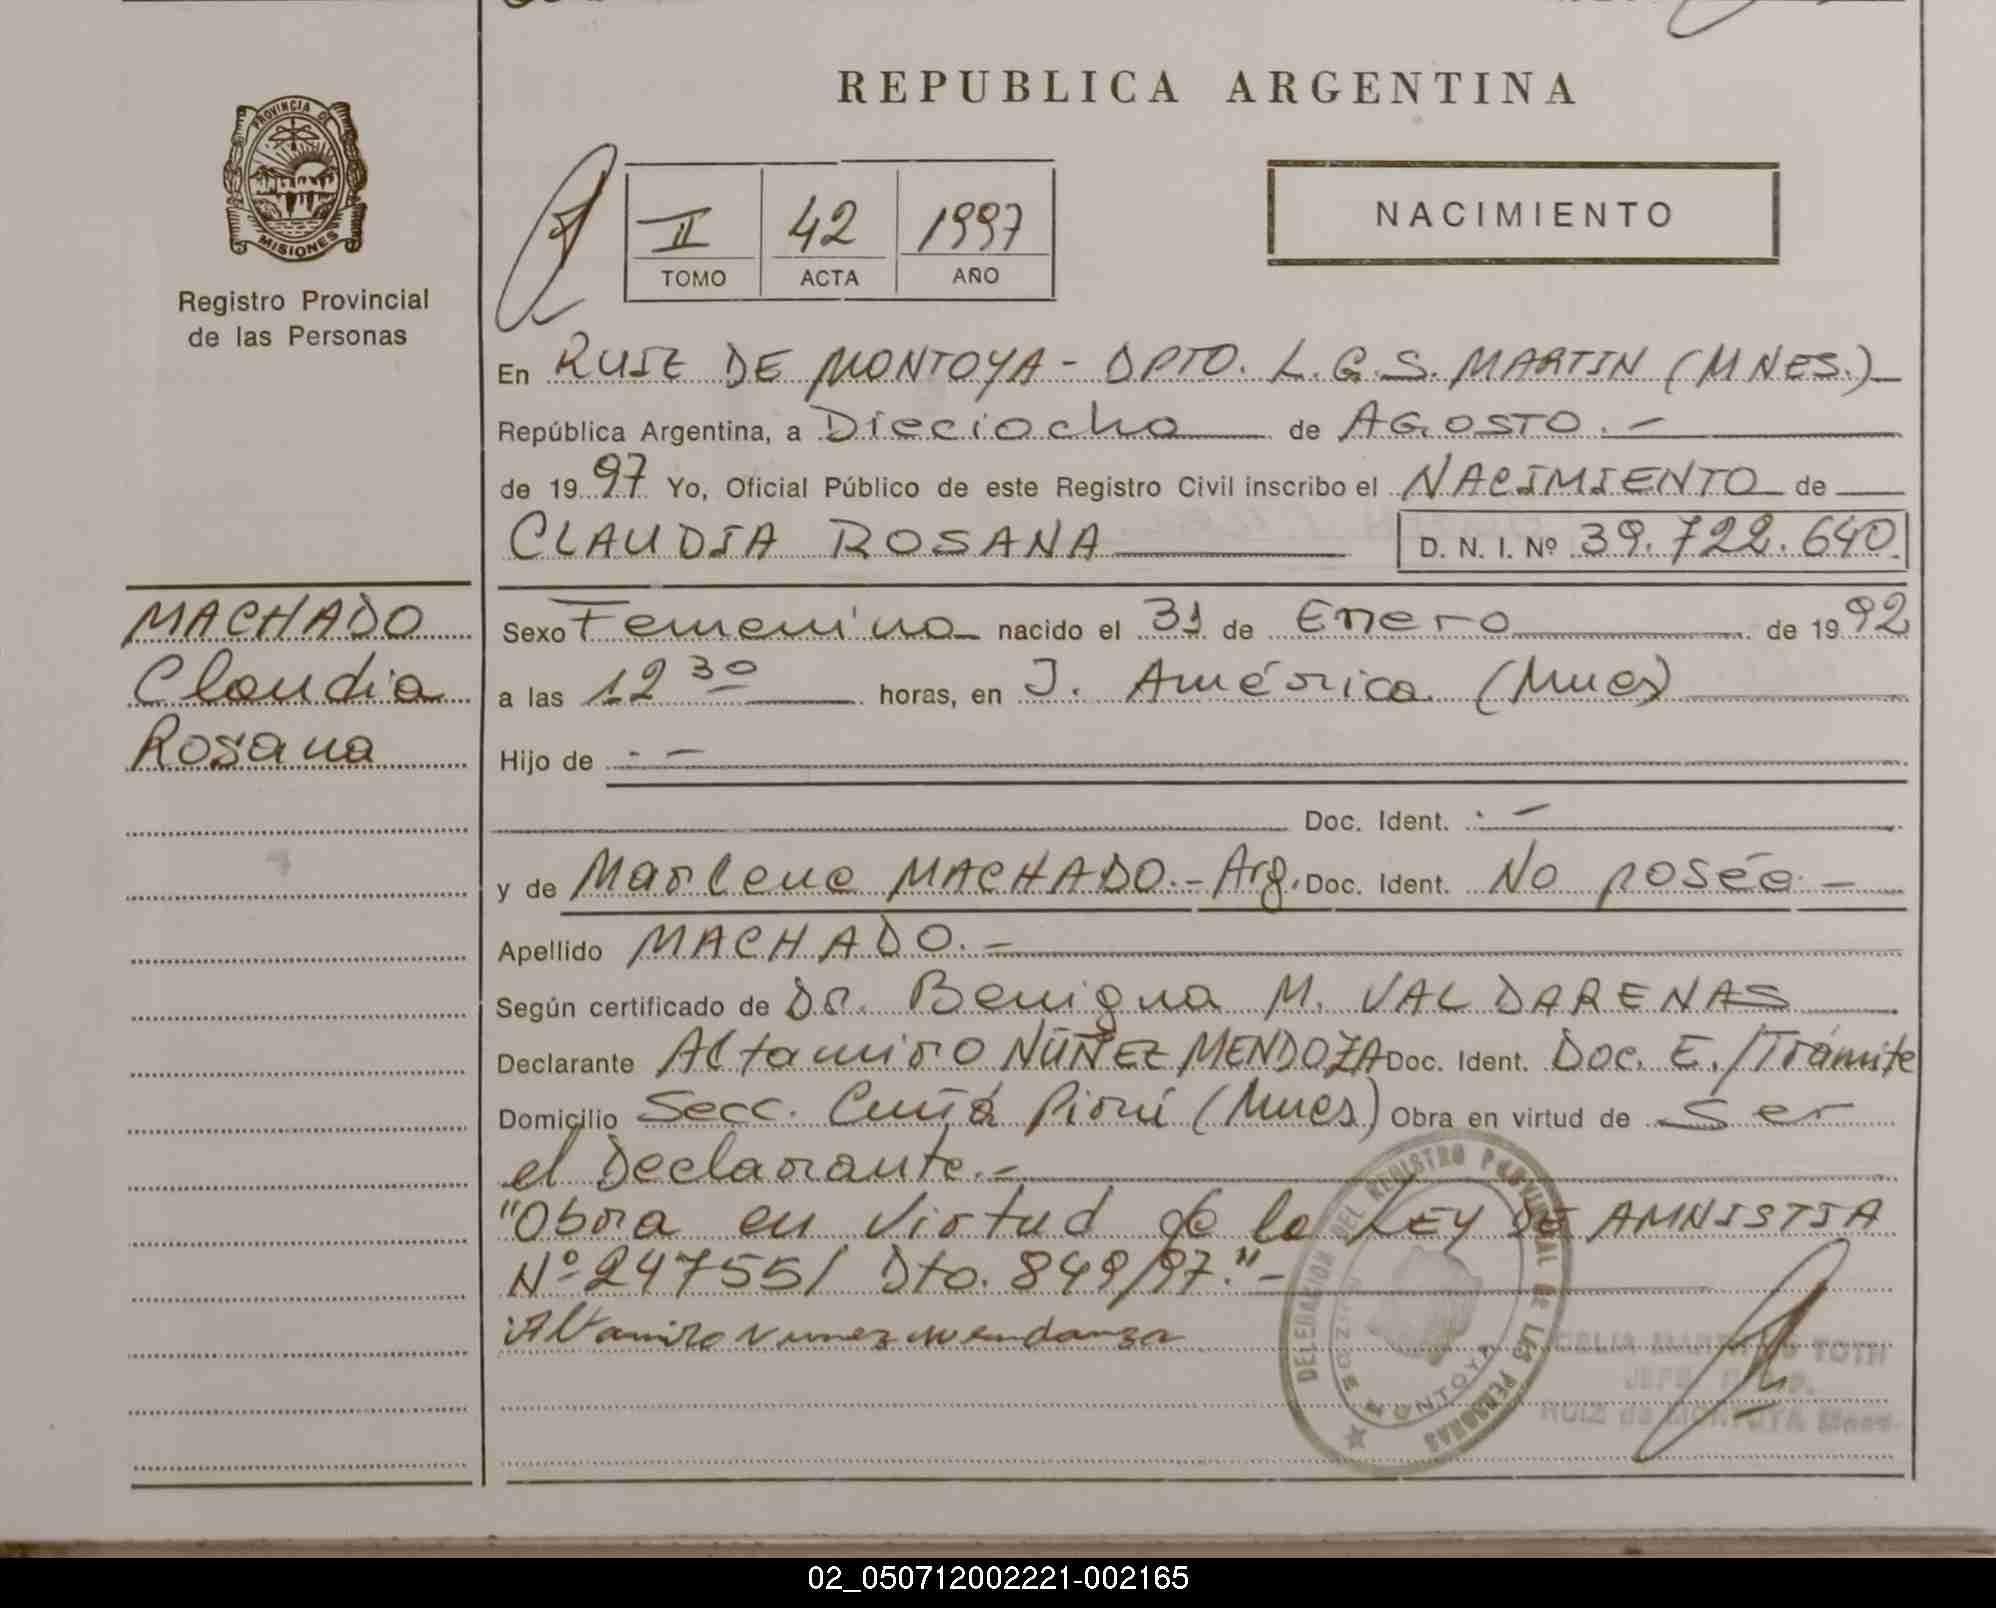 REPUBLICA ARGENTINA
PROVINCIA DE
MISIONES
Registro Provincial
de las Personas
II 42 1997
TOMO ACTA AÑO
NACIMIENTO
En RUIZ DE MONTOYA - DPTO. L. G. S. MARTIN (MNES.)
República Argentina, a Dieciocho de AGOSTO.-
de 1997 Yo, Oficial Público de este Registro Civil inscribo el NACIMIENTO de
CLAUDIA ROSANA D. N. I. Nº 39.722.640
MACHADO
Claudia
Rosana
Sexo Femenino nacido el 31 de Enero de 1992
a las 12 30 horas, en J. América (Mnes)
Hijo de .-
Doc. Ident. .-
y de Marlene MACHADO.- Arg. Doc. Ident. No poséé.-
Apellido MACHADO.-
Según certificado de Dr. Benigna M. VALDARENAS
Declarante Altamiro NUÑEZ MENDOZA Doc. Ident. Doc. E./Trámite
Domicilio Secc. Cuñá Pirú (Mnes) Obra en virtud de Ser
el Declarante.-
"Obra en virtud de la LEY DE AMNISTIA
Nº 24755/ Dto. 849/97."-
Altamiro Nunez Mendanza
DELEGACION DEL REGISTRO PROVINCIAL DE LAS PERSONAS
MONTOYA
TOTH
RUIZ de MONTOYA Mnes.
02_050712002221-002165